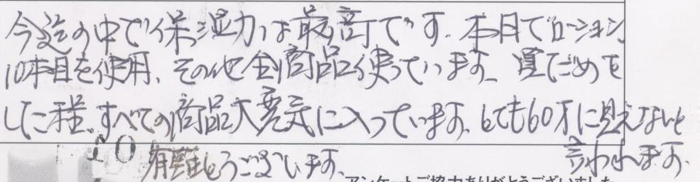 今迄の中で保湿力は最高です。本日でローション
10本目を使用、その他全商品使っています。買いだめを
した程、すべての商品大変気に入っています。とても60才に見えないと
言われます。
有難とうございます。
アンケートご協力ありがとうございました